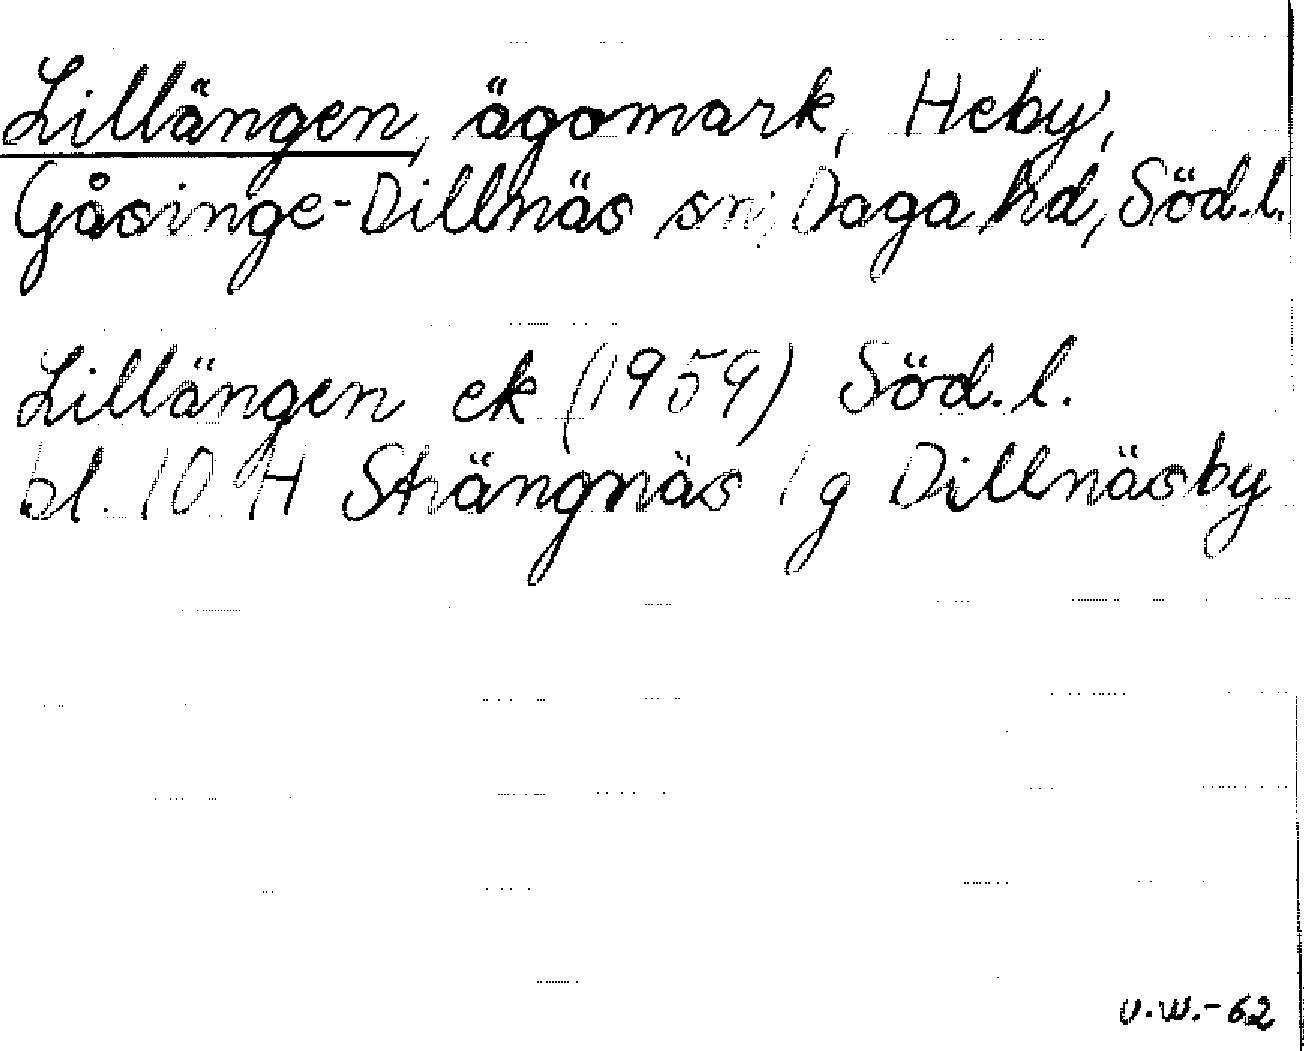 Lillängen, ägomark, Heby,
Gåsinge-Dillnäs sn, Daga hd, Söd.l.
Lillängen ek (1959) Söd.l.
bl. 10 H Strängnäs 1 g Dillnäsby
U.W.-62